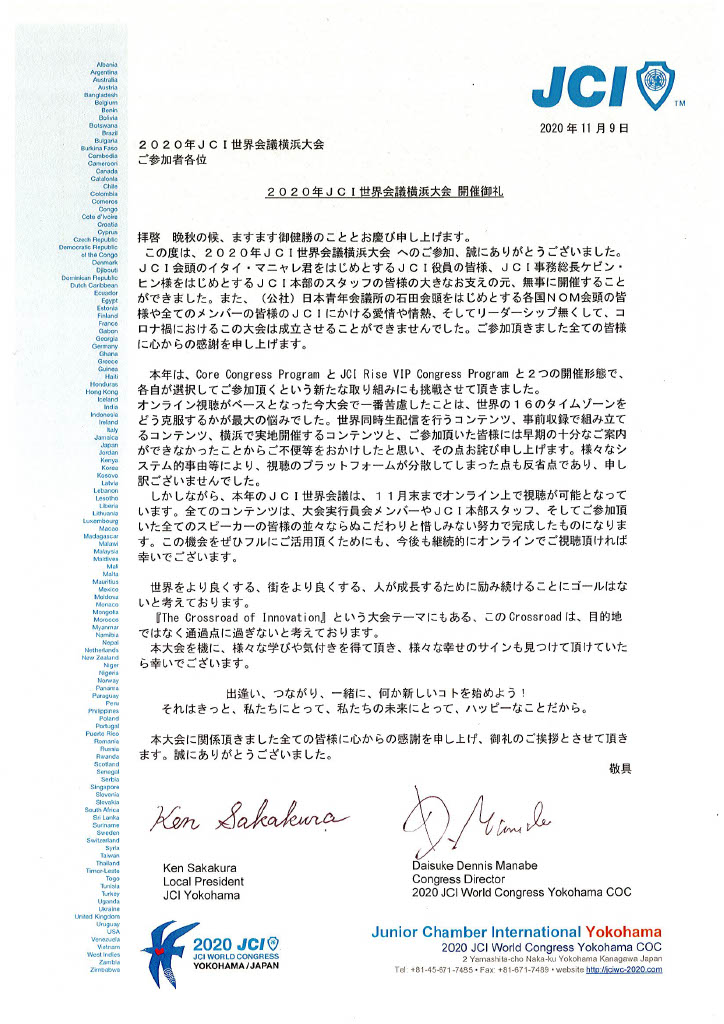 Albania
Argentina
Australia
Austria
Bangladesh
Belgium
Benin
Bolivia
Botswana
Brazil
Bulgaria
Burkina Faso
Cambodia
Cameroon
Canada
Catalonia
Chile
Colombia
Comoros
Congo
Cote d'Ivoire
Croatia
Cyprus
Czech Republic
Democratic Republic
of the Congo
Denmark
Djibouti
Dominican Republic
Dutch Caribbean
Ecuador
Egypt
Estonia
Finland
France
Gabon
Georgia
Germany
Ghana
Greece
Guinea
Haiti
Honduras
Hong Kong
Iceland
India
Indonesia
Ireland
Italy
Jamaica
Japan
Jordan
Kenya
Korea
Kosovo
Latvia
Lebanon
Lesotho
Liberia
Lithuania
Luxembourg
Macao
Madagascar
Malawi
Malaysia
Maldives
Mali
Malta
Mauritius
Mexico
Moldova
Monaco
Mongolia
Morocco
Myanmar
Namibia
Nepal
Netherlands
New Zealand
Niger
Nigeria
Norway
Panama
Paraguay
Peru
Philippines
Poland
Portugal
Puerto Rico
Romania
Russia
Rwanda
Scotland
Senegal
Serbia
Singapore
Slovenia
Slovakia
South Africa
Sri Lanka
Suriname
Sweden
Switzerland
Syria
Taiwan
Thailand
Timor-Leste
Togo
Tunisia
Turkey
Uganda
Ukraine
United Kingdom
Uruguay
USA
Venezuela
Vietnam
West Indies
Zambia
Zimbabwe
JCI TM
2020年11月9日
2020年JCI世界会議横浜大会
ご参加者各位
2020年JCI世界会議横浜大会 開催御礼
拝啓 晩秋の候、ますます御健勝のこととお慶び申し上げます。
この度は、2020年JCI世界会議横浜大会 へのご参加、誠にありがとうございました。
JCI会頭のイタイ・マニャレ君をはじめとするJCI役員の皆様、JCI事務総長ケビン・
ヒン様をはじめとするJCI本部のスタッフの皆様の大きなお支えの元、無事に開催すること
ができました。また、（公社）日本青年会議所の石田会頭をはじめとする各国NOM会頭の皆
様や全てのメンバーの皆様のJCIにかける愛情や情熱、そしてリーダーシップ無くして、コ
ロナ禍におけるこの大会は成立させることができませんでした。ご参加頂きました全ての皆様
に心からの感謝を申し上げます。
本年は、Core Congress Program と JCI Rise VIP Congress Program と2つの開催形態で、
各自が選択してご参加頂くという新たな取り組みにも挑戦させて頂きました。
オンライン視聴がベースとなった今大会で一番苦慮したことは、世界の16のタイムゾーンを
どう克服するかが最大の悩みでした。世界同時生配信を行うコンテンツ、事前収録で組み立て
るコンテンツ、横浜で実地開催するコンテンツと、ご参加頂いた皆様には早期の十分なご案内
ができなかったことからご不便等をおかけしたと思い、その点お詫び申し上げます。様々なシ
ステム的事由等により、視聴のプラットフォームが分散してしまった点も反省点であり、申し
訳ございませんでした。
しかしながら、本年のJCI世界会議は、11月末までオンライン上で視聴が可能となって
います。全てのコンテンツは、大会実行員会メンバーやJCI本部スタッフ、そしてご参加頂
いた全てのスピーカーの皆様の並々ならぬこだわりと惜しみない努力で完成したものになりま
す。この機会をぜひフルにご活用頂くためにも、今後も継続的にオンラインでご視聴頂ければ
幸いでございます。
世界をより良くする、街をより良くする、人が成長するために励み続けることにゴールはな
いと考えております。
『The Crossroad of Innovation』という大会テーマにもある、このCrossroadは、目的地
ではなく通過点に過ぎないと考えております。
本大会を機に、様々な学びや気付きを得て頂き、様々な幸せのサインも見つけて頂けていた
ら幸いでございます。
出逢い、つながり、一緒に、何か新しいコトを始めよう！
それはきっと、私たちにとって、私たちの未来にとって、ハッピーなことだから。
本大会に関係頂きました全ての皆様に心からの感謝を申し上げ、御礼のご挨拶とさせて頂き
ます。誠にありがとうございました。
敬具
Ken Sakakura
D. Manabe
Ken Sakakura
Local President
JCI Yokohama
Daisuke Dennis Manabe
Congress Director
2020 JCI World Congress Yokohama COC
2020 JCI
JCI WORLD CONGRESS
YOKOHAMA/JAPAN
Junior Chamber International Yokohama
2020 JCI World Congress Yokohama COC
2 Yamashita-cho Naka-ku Yokohama Kanagawa Japan
Tel: +81-45-671-7485 • Fax: +81-671-7489 • website http://jciwc-2020.com